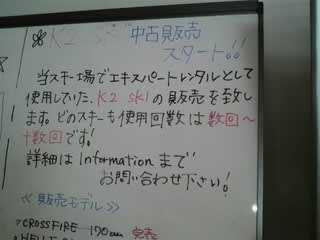 K2 ski 中古販売
スタート!!
当スキー場でエキスパートレンタルとして
使用していた、K2 skiの販売を致し
ます。どのスキーも使用回数は数回〜
十数回です!
詳細はInformationまで
お問い合わせ下さい!
≪販売モデル≫
・CROSSFIRE 170cm 完売